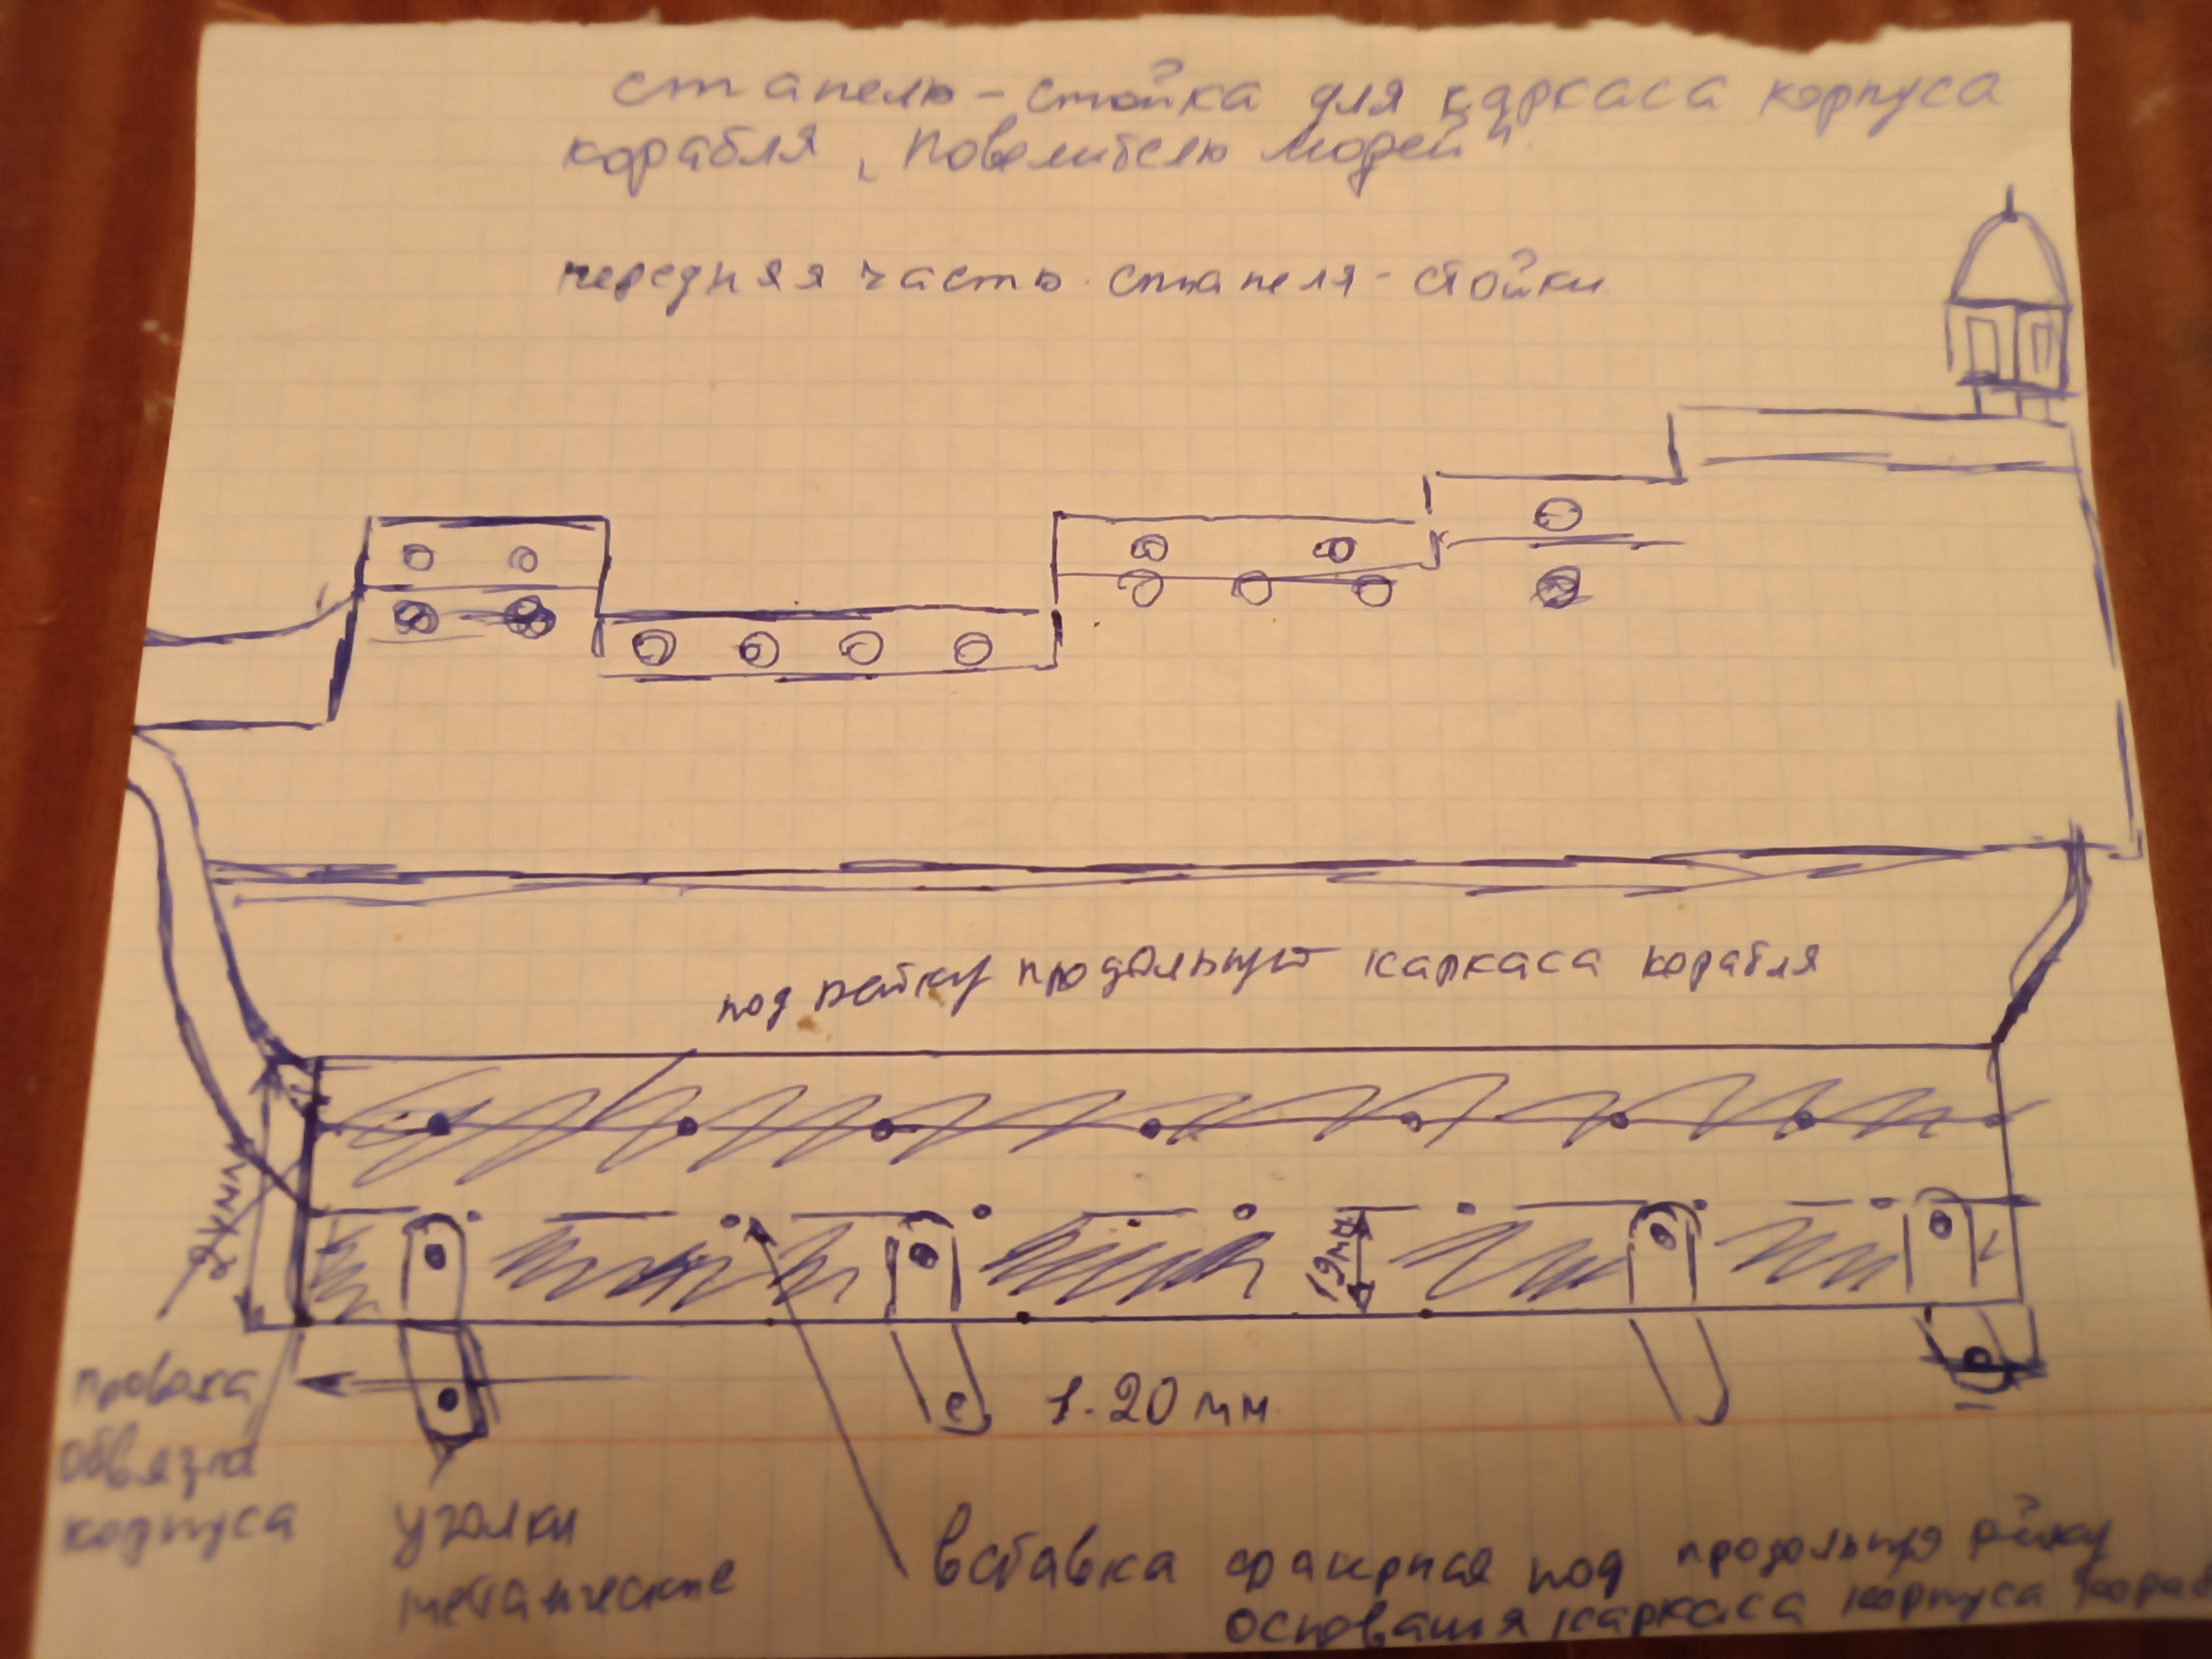 стапель-стойка для каркаса корпуса
корабля „Повелитель морей"
передняя часть стапеля-стойки
под рейку продольную каркаса корабля
24 мм
19 мм
1-20 мм
проволка
обвязка
корпуса
уголки
металические
вставка фанерная под продольную рейку
основания каркаса корпуса кораб